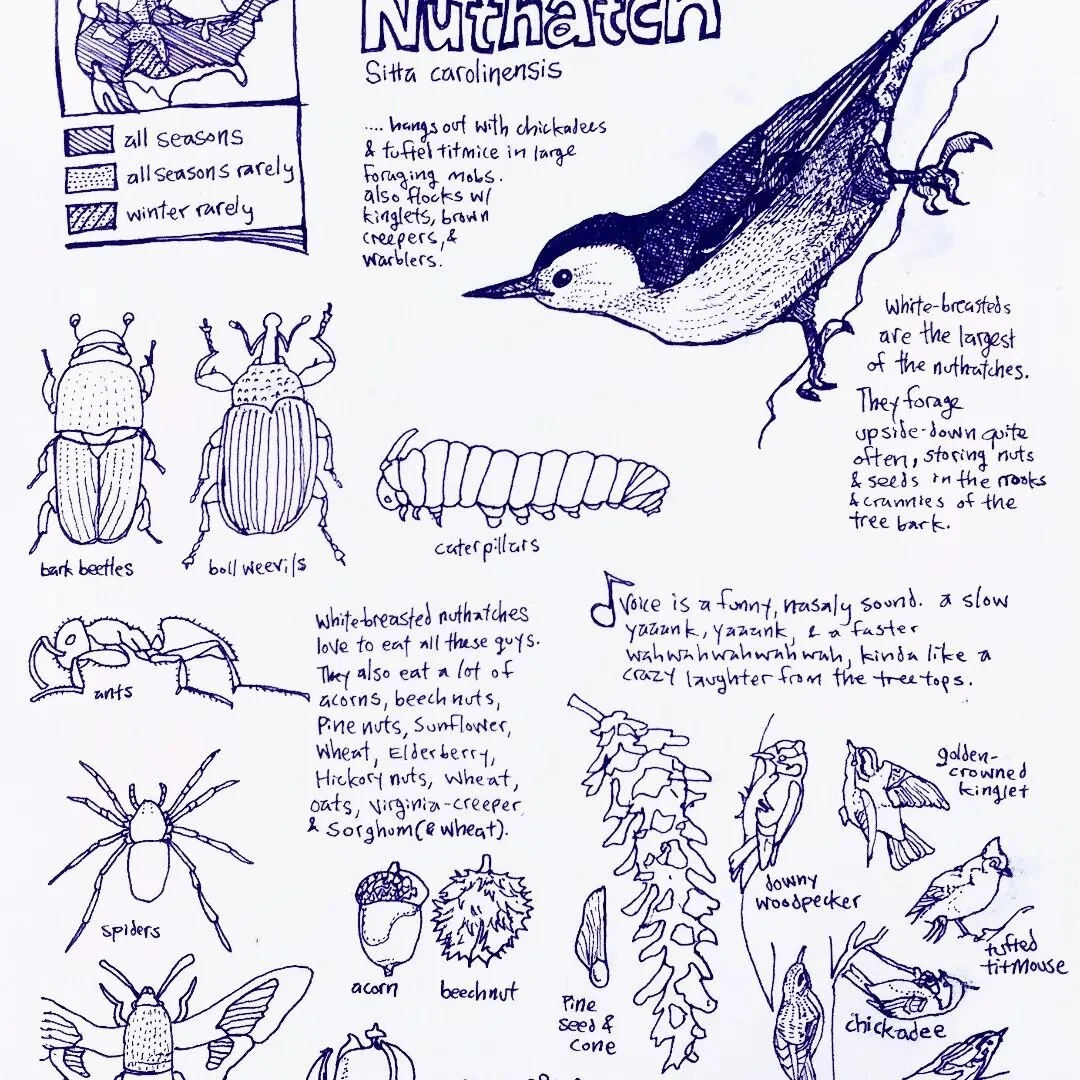 Nuthatch
Sitta carolinensis
all seasons
all seasons rarely
winter rarely
.... hangs out with chickadees
& tufted titmice in large
foraging mobs.
also flocks w/
kinglets, brown
creepers, &
warblers.
White-breasteds
are the largest
of the nuthatches.
They forage
upside-down quite
often, storing nuts
& seeds in the nooks
& crannies of the
tree bark.
bark beetles
boll weevils
caterpillars
ants
White breasted nuthatches
love to eat all these guys.
They also eat a lot of
acorns, beechnuts,
Pine nuts, Sunflower,
Wheat, Elderberry,
Hickory nuts, wheat,
oats, Virginia-creeper
& Sorghum (& wheat).
Voice is a funny, nasaly sound. a slow
yaaank, yaaank, & a faster
wahwahwahwahwah, kinda like a
crazy laughter from the treetops.
spiders
acorn
beechnut
Pine
seed &
cone
downy
woodpecker
golden-
crowned
kinglet
tufted
titmouse
chickadee